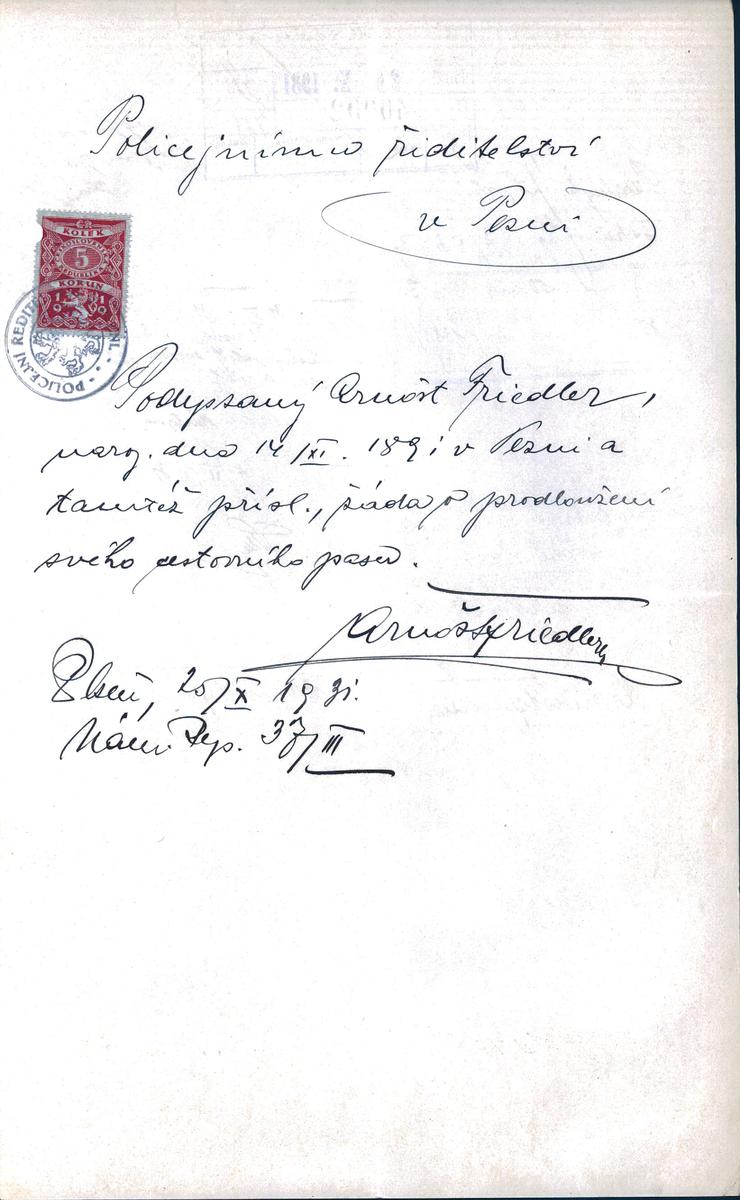 Policejnímu řiditelství
v Plzni
ČR
KOLEK
ČESKOSLOVENSKÁ
5
REPUBLIKA
KORUN
POLICEJNÍ ŘEDITEL
Podepsaný Arnošt Friedler,
naroz. dne 14/XI. 1891 v Plzni a
tamtéž přísl., žáda o prodloužení
svého cestovního pasu.
Arnošt Friedler
Plzeň, 20/X 1931.
Nám. Rep. 37/III